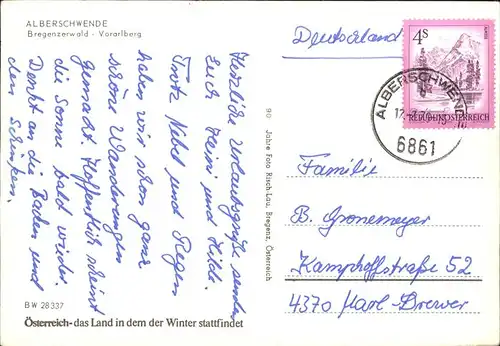 ALBERSCHWENDE
Bregenzerwald - Vorarlberg
Herzliche Urlaubsgrüße senden
Euch Heini und Hilde.
Trotz Nebel und Regen
haben wir schon ganz
schöne Wanderungen
gemacht. Hoffentlich scheint
die Sonne bald wieder.
Denkt an die Baden und
den Schinken.
BW 28337
Österreich - das Land in dem der Winter stattfindet
90 Jahre Foto Risch-Lau, Bregenz, Österreich
Deutschland
4S
REPUBLIK ÖSTERREICH
ALBERSCHWENDE
6861
Familie
B. Gronemeyer
Kamphoffstraße 52
4370 Marl-Brewer